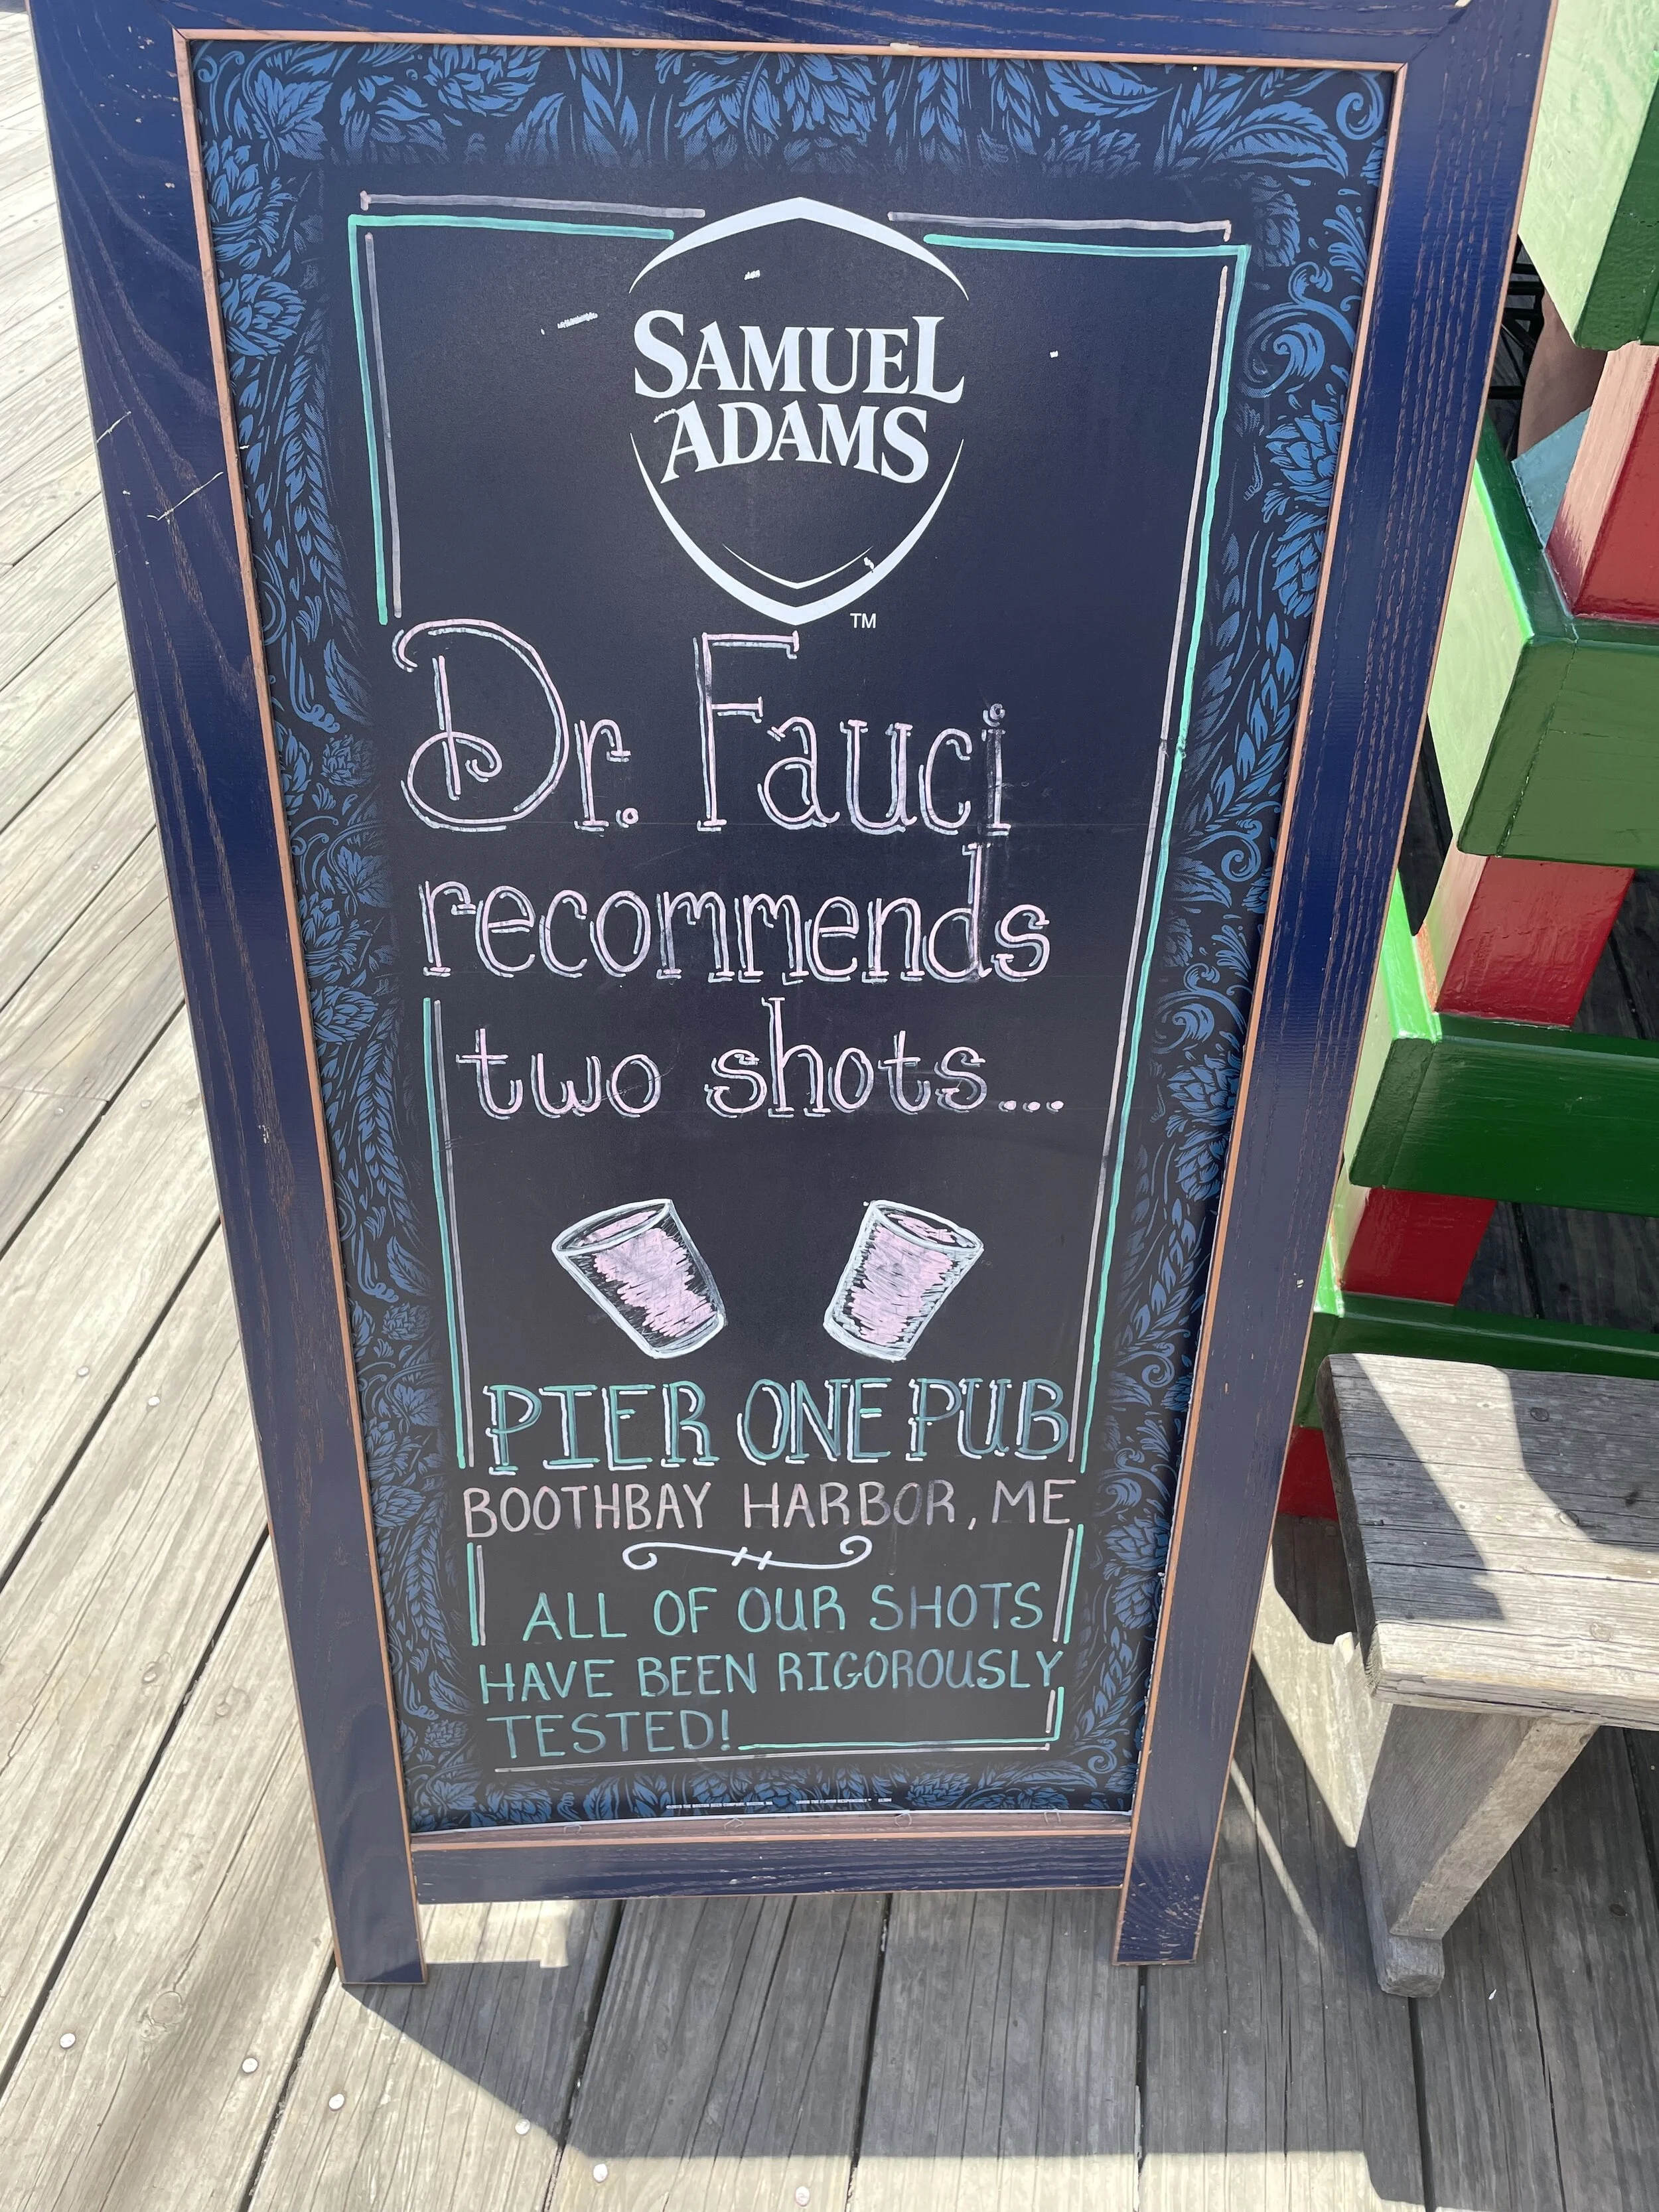 SAMUEL
ADAMS
TM
Dr. Fauci
recommends
two shots...
PIER ONE PUB
BOOTHBAY HARBOR, ME
ALL OF OUR SHOTS
HAVE BEEN RIGOROUSLY
TESTED!